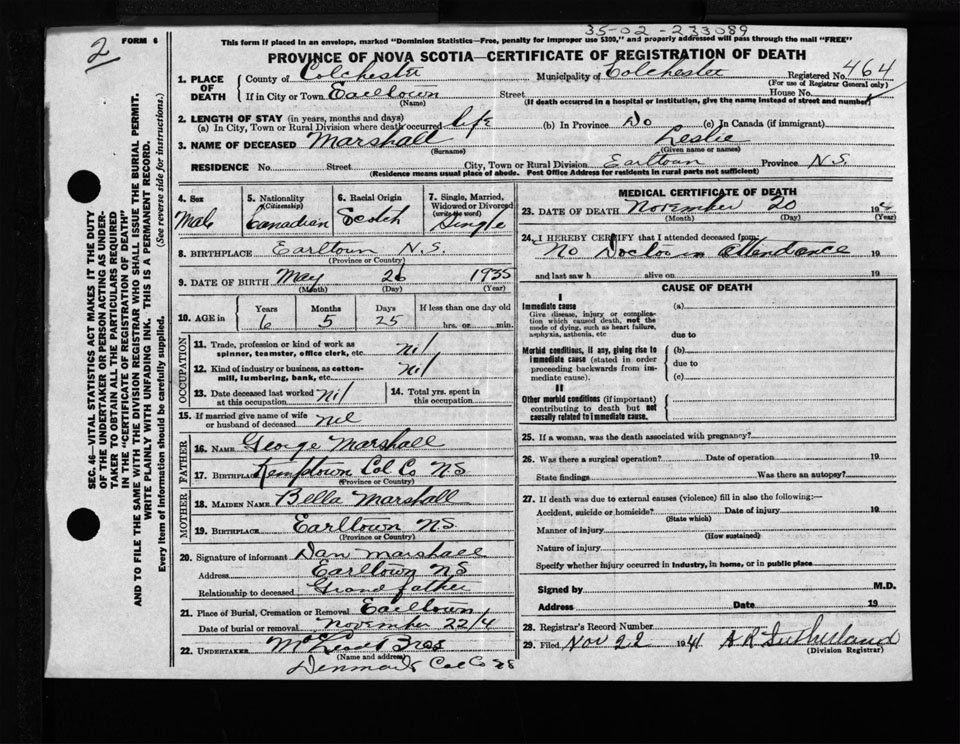 35-02-233089
2
FORM 6
This form if placed in an envelope, marked "Dominion Statistics—Free, penalty for improper use $300," and properly addressed will pass through the mail "FREE"
PROVINCE OF NOVA SCOTIA—CERTIFICATE OF REGISTRATION OF DEATH
1. PLACE OF DEATH County of Colchester Municipality of Colchester Registered No. 464
(For use of Registrar General only)
If in City or Town Earltown Street House No.
(Name) (If death occurred in a hospital or institution, give the name instead of street and number)
2. LENGTH OF STAY (in years, months and days)
(a) In City, Town or Rural Division where death occurred life (b) In Province Do (c) In Canada (if immigrant)
3. NAME OF DECEASED Marshall Leslie
(Surname) (Given name or names)
RESIDENCE No. Street City, Town or Rural Division Earltown Province N.S.
(Residence means usual place of abode. Post Office Address for residents in rural parts not sufficient)
4. Sex Male
5. Nationality (Citizenship) Canadian
6. Racial Origin Scotch
7. Single, Married, Widowed or Divorced (write the word) Single
8. BIRTHPLACE Earltown N.S.
(Province or Country)
9. DATE OF BIRTH May 26 1935
(Month) (Day) (Year)
10. AGE in Years Months Days If less than one day old
6 5 25 hrs. or min.
OCCUPATION
11. Trade, profession or kind of work as spinner, teamster, office clerk, etc. nil
12. Kind of industry or business, as cotton-mill, lumbering, bank, etc. nil
13. Date deceased last worked at this occupation nil
14. Total yrs. spent in this occupation
15. If married give name of wife or husband of deceased nil
FATHER
16. NAME George Marshall
17. BIRTHPLACE Kemptown Col Co N.S
(Province or Country)
MOTHER
18. MAIDEN NAME Bella Marshall
19. BIRTHPLACE Earltown NS
(Province or Country)
20. Signature of informant Dan Marshall
Address Earltown NS
Relationship to deceased Grand father
21. Place of Burial, Cremation or Removal Earltown
Date of burial or removal November 22/4
22. UNDERTAKER Bros
(Name and address)
Denmark Col Co NS
MEDICAL CERTIFICATE OF DEATH
23. DATE OF DEATH November 20 19
(Month) (Day) (Year)
24. I HEREBY CERTIFY that I attended deceased from:
No Doctor in attendance 19
and last saw h alive on 19
CAUSE OF DEATH
I
Immediate cause (a)
Give disease, injury or complication which caused death, not the mode of dying, such as heart failure, asphyxia, asthenia, etc due to
Morbid conditions, if any, giving rise to immediate cause (stated in order proceeding backwards from immediate cause). (b)
due to
(c)
II
Other morbid conditions (if important) contributing to death but not causally related to immediate cause.
25. If a woman, was the death associated with pregnancy?
26. Was there a surgical operation? Date of operation 19
State findings Was there an autopsy?
27. If death was due to external causes (violence) fill in also the following:—
Accident, suicide or homicide? Date of injury 19
(State which)
Manner of injury
(How sustained)
Nature of injury
Specify whether injury occurred in industry, in home, or in public place
Signed by M.D.
Address Date 19
28. Registrar's Record Number
29. Filed Nov 22 1941 A R Sutherland
(Division Registrar)
SEC. 46—VITAL STATISTICS ACT MAKES IT THE DUTY
OF THE UNDERTAKER OR PERSON ACTING AS UNDER-
TAKER TO OBTAIN ALL THE PARTICULARS REQUIRED
IN THE "CERTIFICATE OF REGISTRATION OF DEATH"
AND TO FILE THE SAME WITH THE DIVISION REGISTRAR WHO SHALL ISSUE THE BURIAL PERMIT.
WRITE PLAINLY WITH UNFADING INK. THIS IS A PERMANENT RECORD.
Every item of information should be carefully supplied. (See reverse side for instructions.)